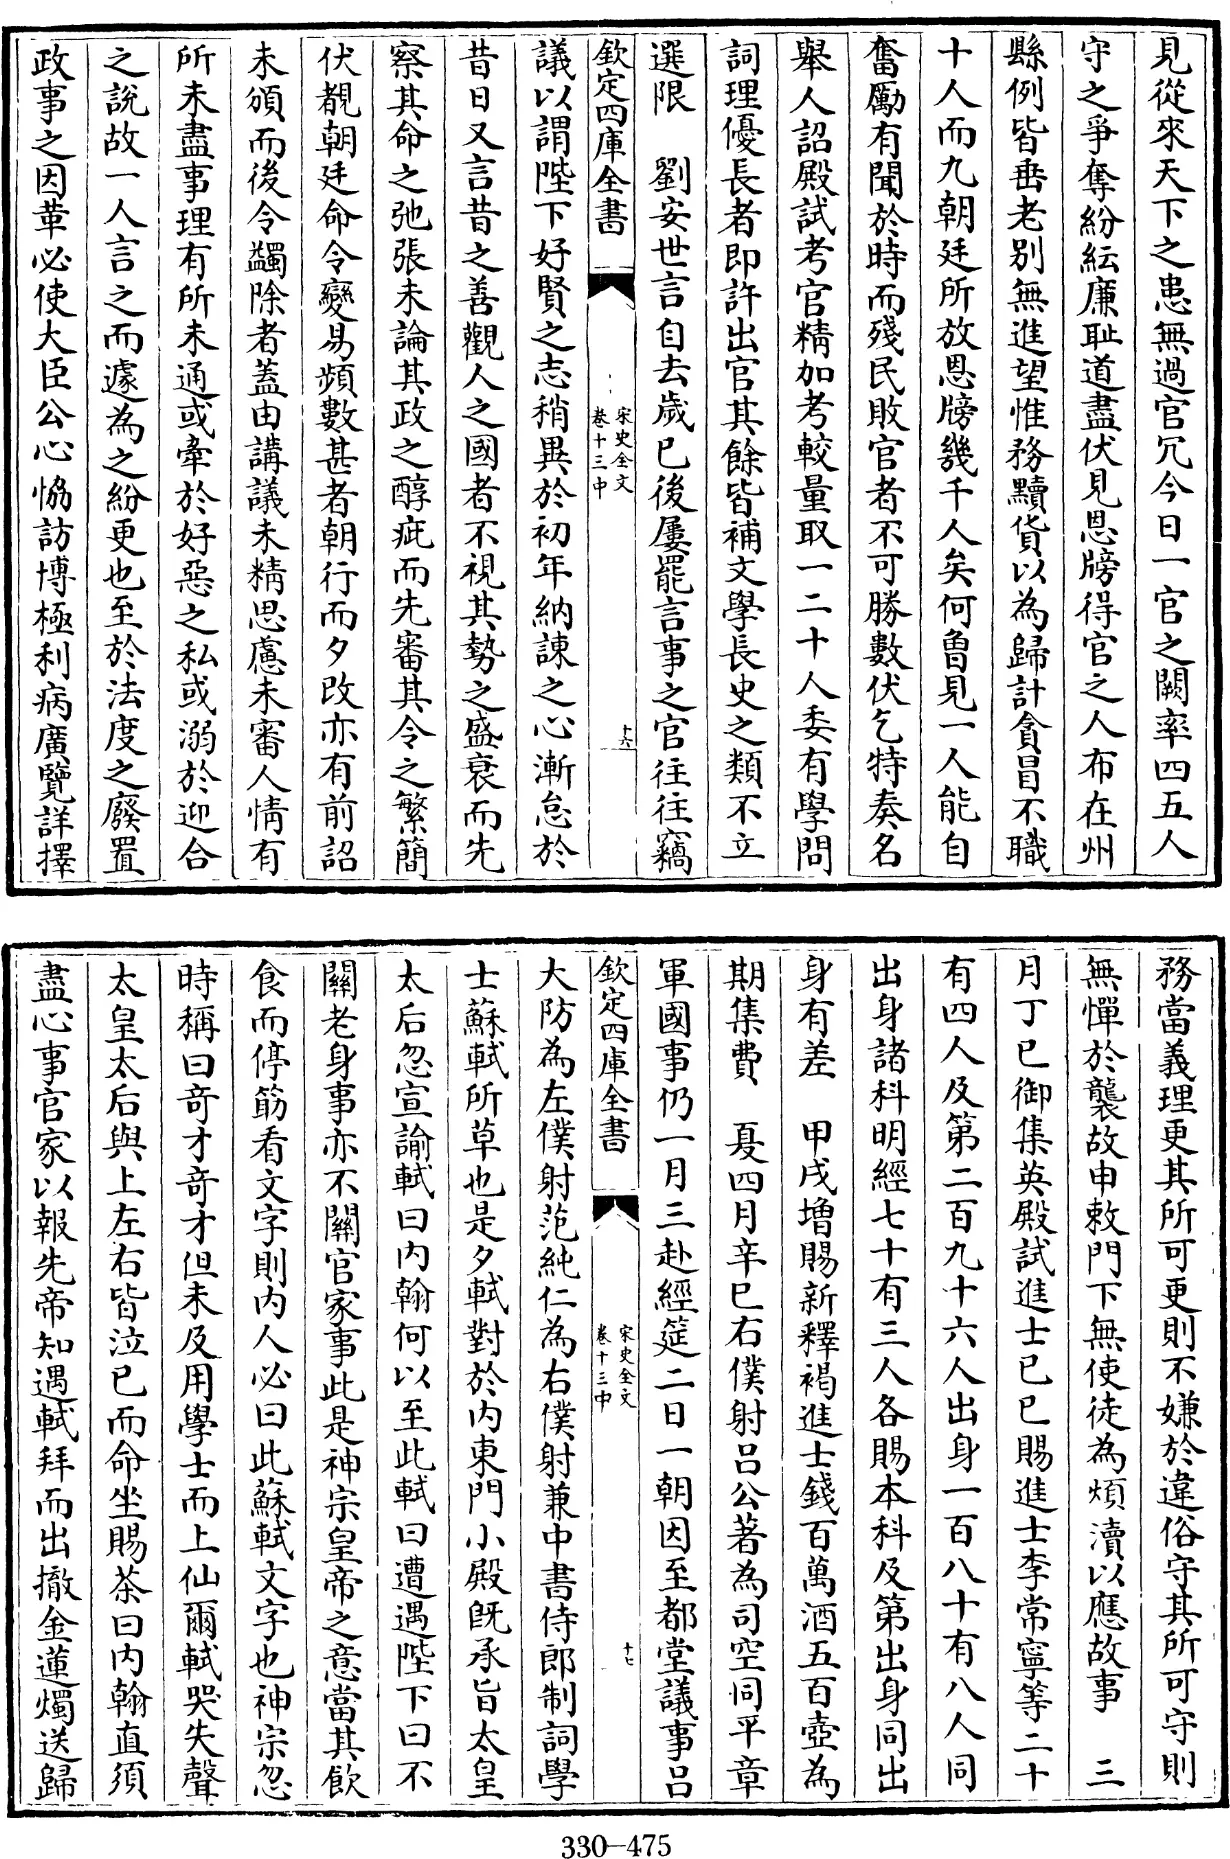 見從來天下之患無過官冗今日一官之闕率四五人
守之爭奪紛紜廉恥道盡伏見恩牓得官之人布在州
縣例皆垂老別無進望惟務黷貨以為歸計貪冒不職
十人而九朝廷所放恩牓幾千人矣何曾見一人能自
奮勵有聞於時而殘民敗官者不可勝數伏乞特奏名
舉人詔殿試考官精加考較量取一二十人委有學問
詞理優長者即許出官其餘皆補文學長史之類不立
選限　劉安世言自去歲已後屢罷言事之官往往竊
欽定四庫全書
宋史全文
卷十三中
十六
議以謂陛下好賢之志稍異於初年納諫之心漸怠於
昔日又言昔之善觀人之國者不視其勢之盛衰而先
察其命之弛張未論其政之醇疵而先審其令之繁簡
伏覩朝廷命令變易頻數甚者朝行而夕改亦有前詔
未頒而後令蠲除者蓋由講議未精思慮未審人情有
所未盡事理有所未通或牽於好惡之私或溺於迎合
之說故一人言之而遽為之紛更也至於法度之廢置
政事之因革必使大臣公心恊訪博極利病廣覽詳擇
務當義理更其所可更則不嫌於違俗守其所可守則
無憚於襲故申敕門下無使徒為煩瀆以應故事　三
月丁巳御集英殿試進士己巳賜進士李常寧等二十
有四人及第二百九十六人出身一百八十有八人同
出身諸科明經七十有三人各賜本科及第出身同出
身有差　甲戌增賜新釋褐進士錢百萬酒五百壺為
期集費　夏四月辛巳右僕射吕公著為司空同平章
軍國事仍一月三赴經筵二日一朝因至都堂議事吕
欽定四庫全書
宋史全文
卷十三中
十七
大防為左僕射范純仁為右僕射兼中書侍郎制詞學
士蘇軾所草也是夕軾對於内東門小殿旣承旨太皇
太后忽宣諭軾曰内翰何以至此軾曰遭遇陛下曰不
關老身事亦不關官家事此是神宗皇帝之意當其飲
食而停筯看文字則内人必曰此蘇軾文字也神宗忽
時稱曰竒才竒才但未及用學士而上仙爾軾哭失聲
太皇太后與上左右皆泣已而命坐賜茶曰内翰直須
盡心事官家以報先帝知遇軾拜而出撤金蓮燭送歸
330-475